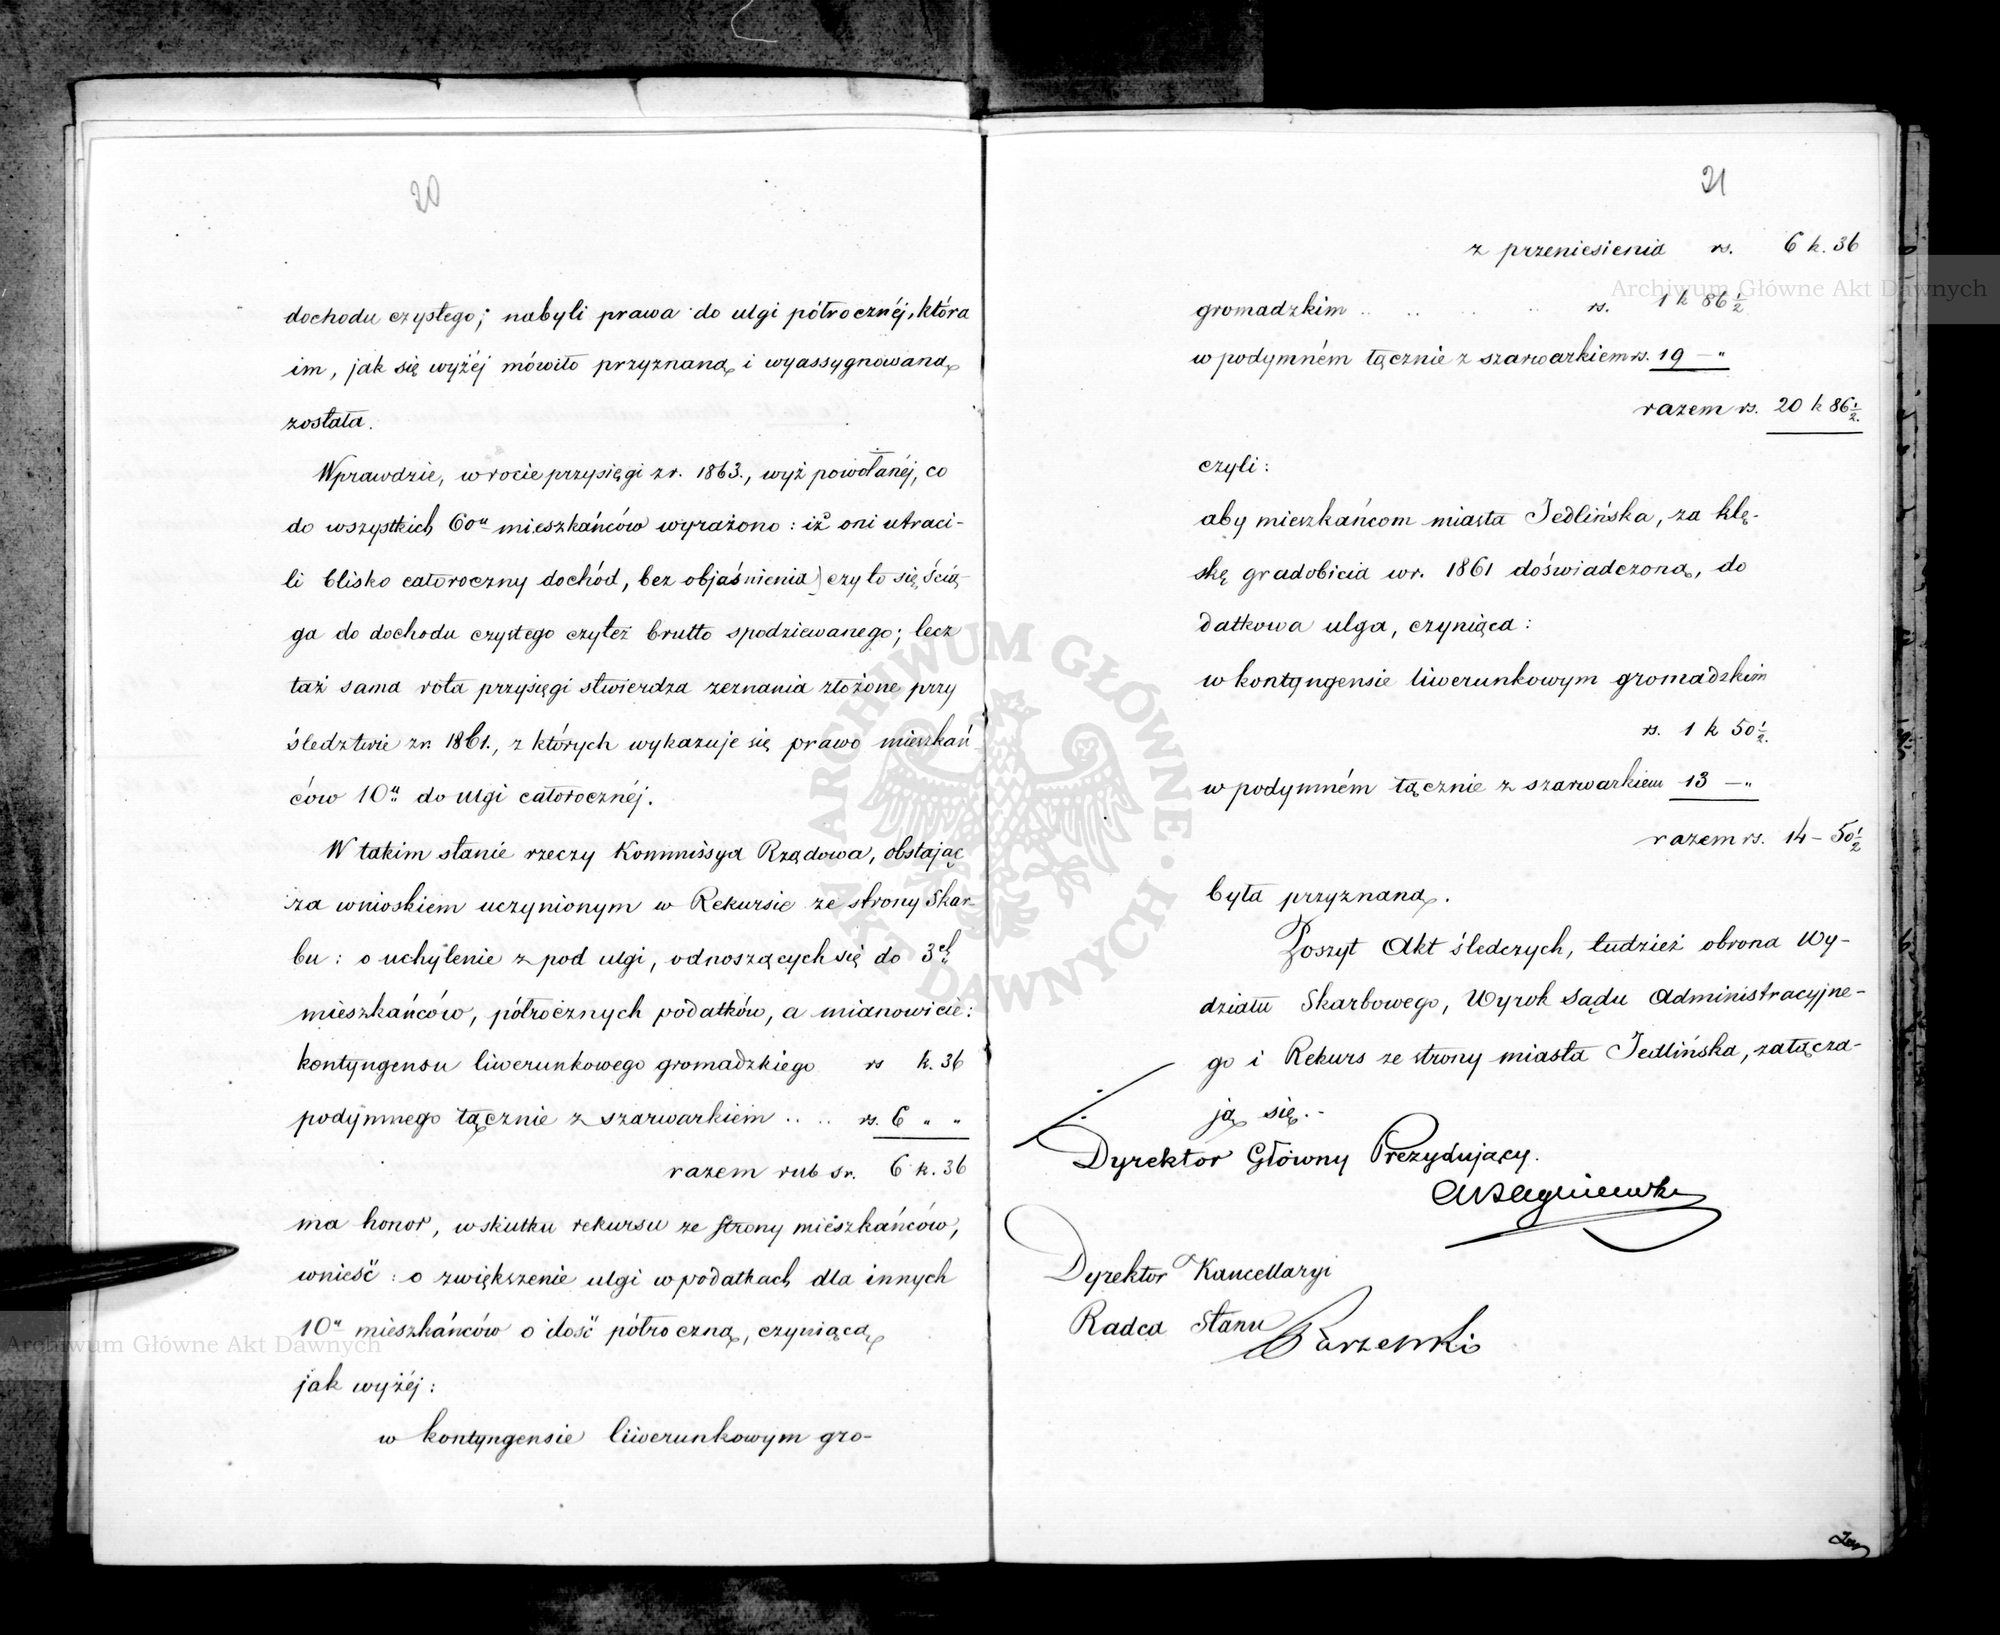 20
dochodu czystego; nabyli prawa do ulgi półrocznéj, która
im, jak się wyżéj mówiło przyznaną i wyassygnowaną
została.
Wprawdzie, w rocie przysięgi z r. 1863., wyż powołanéj, co
do wszystkich 60u mieszkańców wyrażono: iż oni utraci-
li blisko całoroczny dochód, bez objaśnienia czy to się ścią-
ga do dochodu czystego czyteż brutto spodziewanego; lecz
taż sama rota przysięgi stwierdza zeznania złożone przy
śledztwie z r. 1861., z których wykazuje się prawo mieszkań-
ców 10u do ulgi całorocznéj.
W takim stanie rzeczy Kommissya Rządowa, obstając
za wnioskiem uczynionym w Rekursie ze strony Skar-
bu: o uchylenie z pod ulgi, odnoszących się do 3ch
mieszkańców, półrocznych podatków, a mianowicie:
kontyngensu liwerunkowego gromadzkiego rs k. 36
podymnego łącznie z szarwarkiem .. .. rs. 6 „ „
razem rub sr. 6 k. 36
ma honor, w skutku rekursu ze strony mieszkańców,
wnieść: o zwiększenie ulgi w podatkach dla innych
10u mieszkańców o ilość półroczną, czyniącą
jak wyżéj:
w kontyngensie liwerunkowym gro-
21
z przeniesienia rs. 6 k. 36
gromadzkim .. .. .. .. rs. 1 k 86 1/2
w podymném łącznie z szarwarkiem rs. 19 — „
razem rs. 20 k 86 1/2.
czyli:
aby mieszkańcom miasta Jedlińska, za klę-
skę gradobicia w r. 1861 doświadczoną, do
datkowa ulga, czyniąca:
w kontyngensie liwerunkowym gromadzkim
rs. 1 k 50 1/2.
w podymném łącznie z szarwarkiem 13 — „
razem rs. 14 — 50 1/2
była przyznaną.
Poszyt Akt śledczych, tudzież obrona Wy-
działu Skarbowego, Wyrok Sądu Administracyjne-
go i Rekurs ze strony miasta Jedlińska, załącza-
ją się.-
Dyrektor Główny Prezydujący.
Dyrektor Kancellaryi
Radca Stanu
Archiwum Główne Akt Dawnych
Archiwum Główne Akt Dawnych
ARCHIWUM GŁÓWNE AKT DAWNYCH